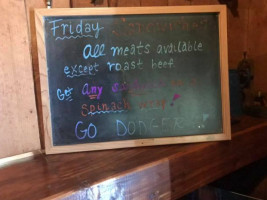 Friday
all meats available
except roast beef
Get any
Spinach wrap!
GO DODGERS!!